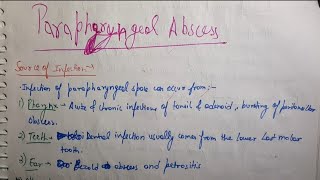 Parapharyngeal Abscess
Source of Infection:-
Infection of parapharyngeal space can occur from:-
1) Pharynx - Acute & chronic infections of tonsil & adenoid, bursting of peritonsillar
abscess.
2) Teeth - Dental infection usually comes from the lower last molar
tooth.
3) Ear - Bezold abscess and petrositis